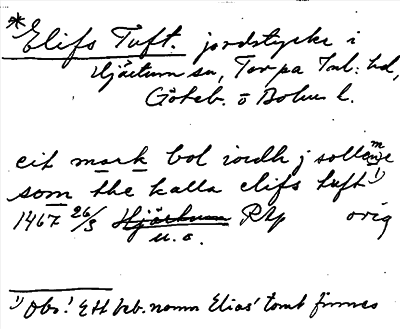 *Elifs Tuft. jordstycke i
Hjärtum sn, Torpa Inl: hd,
Göteb. o Bohus l.
eit mark bol iordh j sollom
som the kalla elifs tuft 1)
1467 26/3 Hjärtum RAp orig
u. a.
1) Obs! Ett beb. namn Elias' tomt finnes